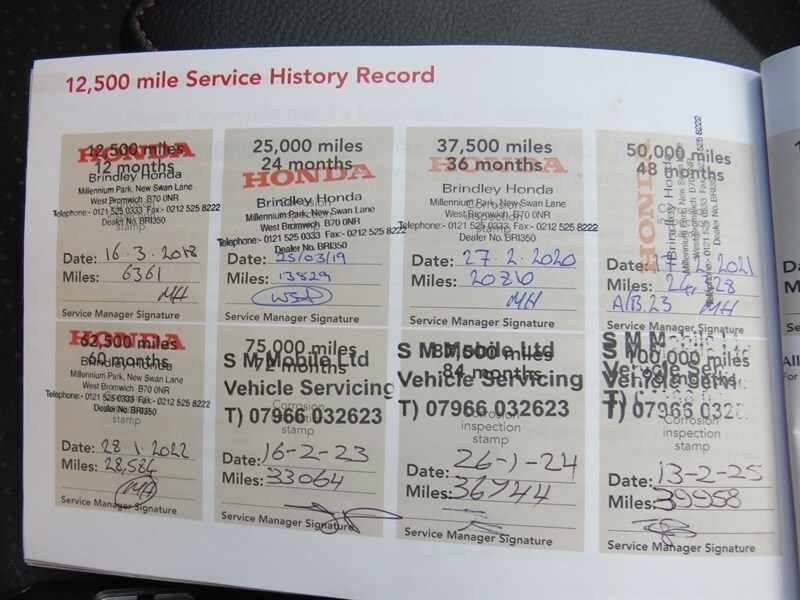 12,500 mile Service History Record
12,500 miles
12 months
HONDA
Brindley Honda
Millennium Park, New Swan Lane
West Bromwich B70 0NR
Telephone:- 0121 525 0333 Fax:- 0212 525 8222
Dealer No. BRI350
Date: 16.3.2018
Miles: 6361
MH
Service Manager Signature
25,000 miles
24 months
HONDA
Brindley Honda
Millennium Park, New Swan Lane
West Bromwich B70 0NR
Telephone:- 0121 525 0333 Fax:- 0212 525 8222
Dealer No. BRI350
Date: 25/03/19
Miles: 13829
Service Manager Signature
37,500 miles
36 months
HONDA
Brindley Honda
Corrosion
inspection
Millennium Park, New Swan Lane
West Bromwich B70 0NR
Telephone:- 0121 525 0333 Fax:- 0212 525 8222
Dealer No. BRI350
Date: 27.2.2020
Miles: 20810
MH
Service Manager Signature
50,000 miles
48 months
HONDA
Brindley Honda
Millennium Park, New Swan Lane
West Bromwich B70 0NR
Telephone:- 0121 525 0333 Fax:- 0212 525 8222
Date: 17.2.2021
Miles:
A/B.23 MH
Service Manager Signature
62,500 miles
60 months
HONDA
Brindley Honda
Millennium Park, New Swan Lane
West Bromwich B70 0NR
Telephone:- 0121 525 0333 Fax:- 0212 525 8222
Dealer No. BRI350
stamp
Date: 28.1.2022
Miles: 28,584
MH
Service Manager Signature
75,000 miles
72 months
S M Mobile Ltd
Vehicle Servicing
T) 07966 032623
Corrosion
inspection
stamp
Date: 16-2-23
Miles: 33064
Service Manager Signature
87,500 miles
84 months
S M Mobile Ltd
Vehicle Servicing
T) 07966 032623
Corrosion
inspection
stamp
Date: 26-1-24
Miles: 36944
Service Manager Signature
100,000 miles
96 months
S M Mobile Ltd
Vehicle
T) 07966 032
Corrosion
inspection
stamp
Date: 13-2-25
Miles: 39958
Service Manager Signature